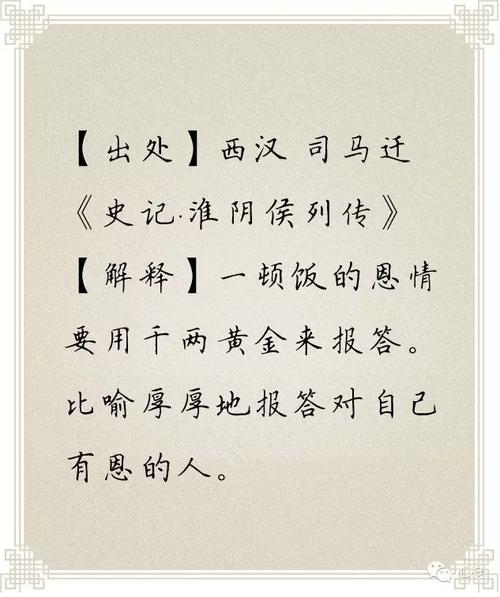 【出处】西汉 司马迁
《史记·淮阴侯列传》
【解释】一顿饭的恩情
要用千两黄金来报答。
比喻厚厚地报答对自己
有恩的人。